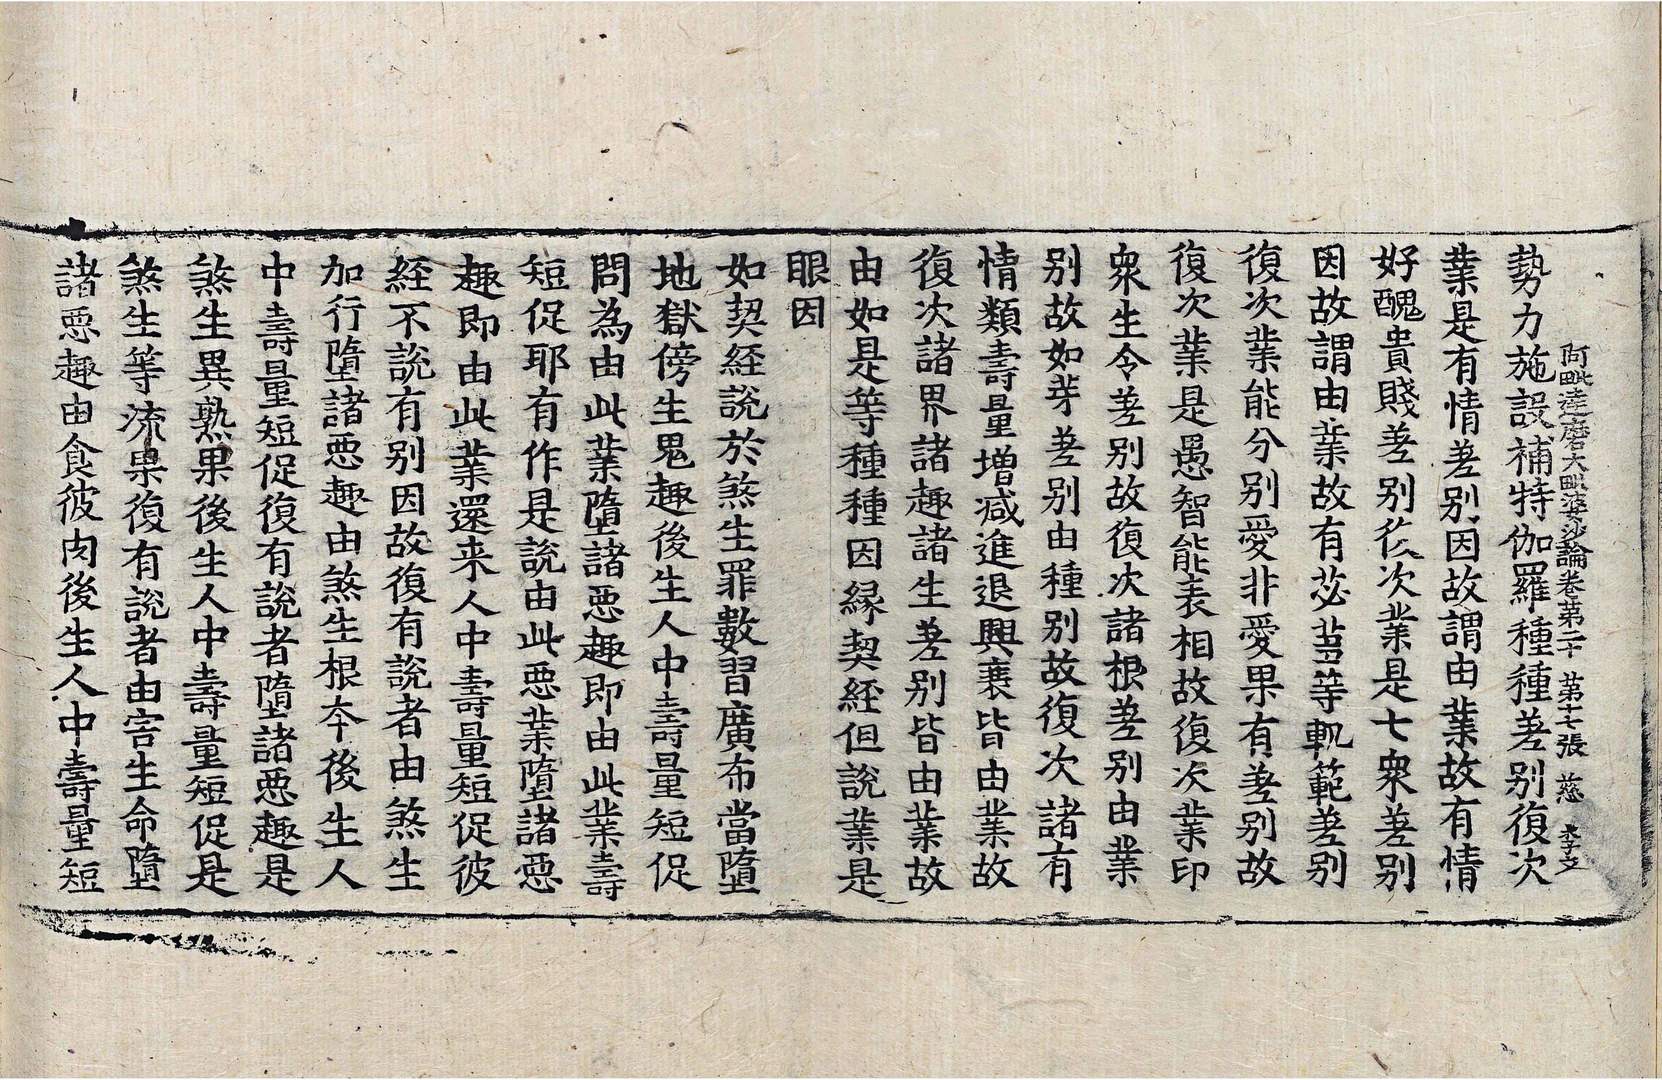 阿毗達磨大毗婆沙論卷第二十　第十七張　慈　李文
勢力施設補特伽羅種種差別復次
業是有情差別因故謂由業故有情
好醜貴賤差別復次業是七衆差別
因故謂由業故有苾芻等軌範差別
復次業能分別愛非愛果有差別故
復次業是愚智能表相故復次業印
衆生令差別故復次諸根差別由業
別故如芽差別由種別故復次諸有
情類壽量增减進退興衰皆由業故
復次諸界諸趣諸生差別皆由業故
由如是等種種因緣契經但說業是
眼因
如契經說於煞生罪數習廣布當墮
地獄傍生鬼趣後生人中壽量短促
問為由此業墮諸惡趣即由此業壽
短促耶有作是說由此惡業墮諸惡
趣即由此業還来人中壽量短促彼
經不說有別因故復有說者由煞生
加行墮諸惡趣由煞生根夲後生人
中壽量短促復有說者墮諸惡趣是
煞生異熟果後生人中壽量短促是
煞生等流果復有說者由害生命墮
諸惡趣由食彼肉後生人中壽量短